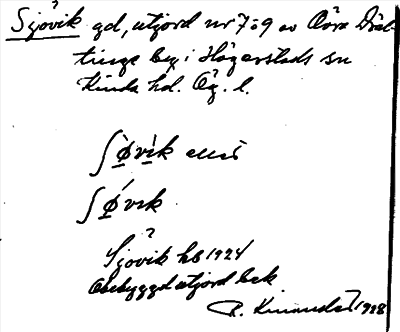 Sjövik gd, utjord nr 7:9 av Övra Dräl-
tinge by i Hägerstads sn
Kinda hd. Ög. l.
ʃøvik eller
ʃøvik
Sjövik hs 1924
Obebyggd utjord bek
1928